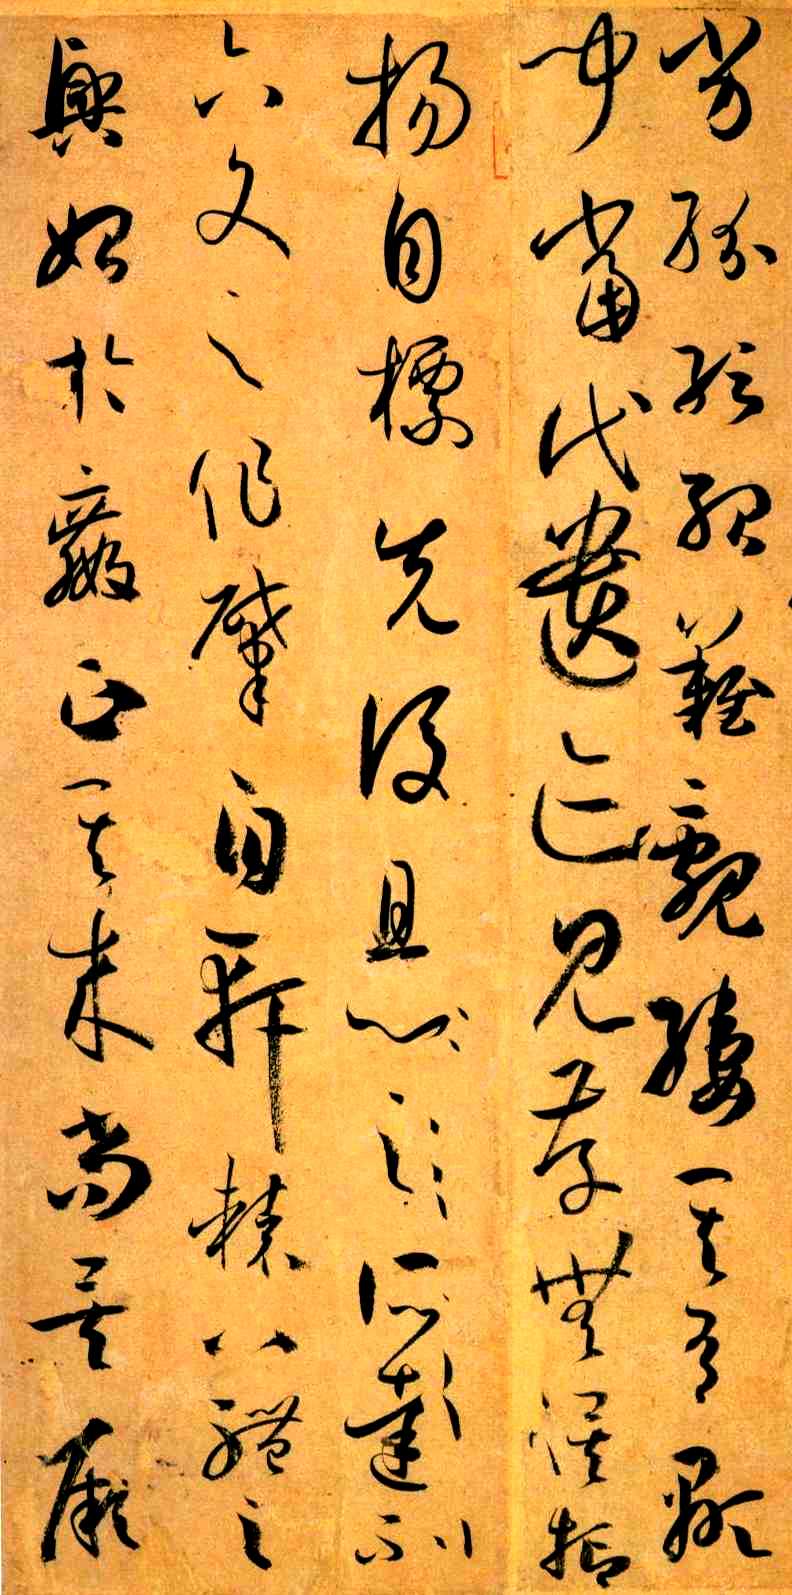 芳紛紜難覼縷其有顯
聞當代遺迹見存無俟抑
揚自標先後且六
六文之作肇自軒轅八體之
興始於嬴正其來尚矣厥